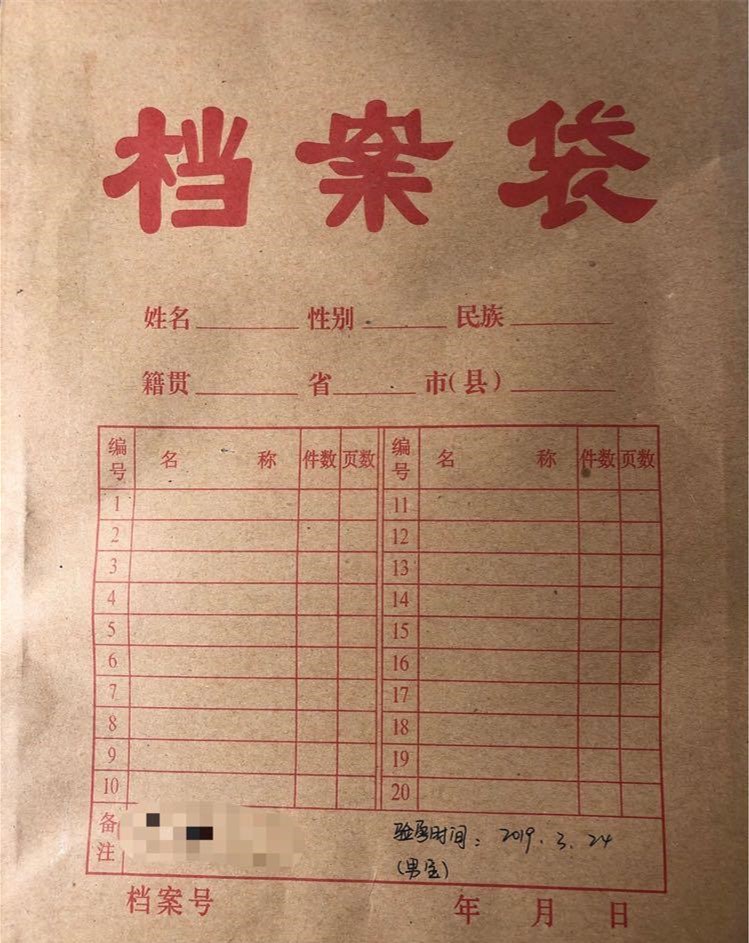 档案袋
姓名 性别 民族
籍贯 省 市(县)
编号 名 称 件数 页数 编号 名 称 件数 页数
1 11
2 12
3 13
4 14
5 15
6 16
7 17
8 18
9 19
10 20
备注 验孕时间: 2019.3.24
(男宝)
档案号 年 月 日